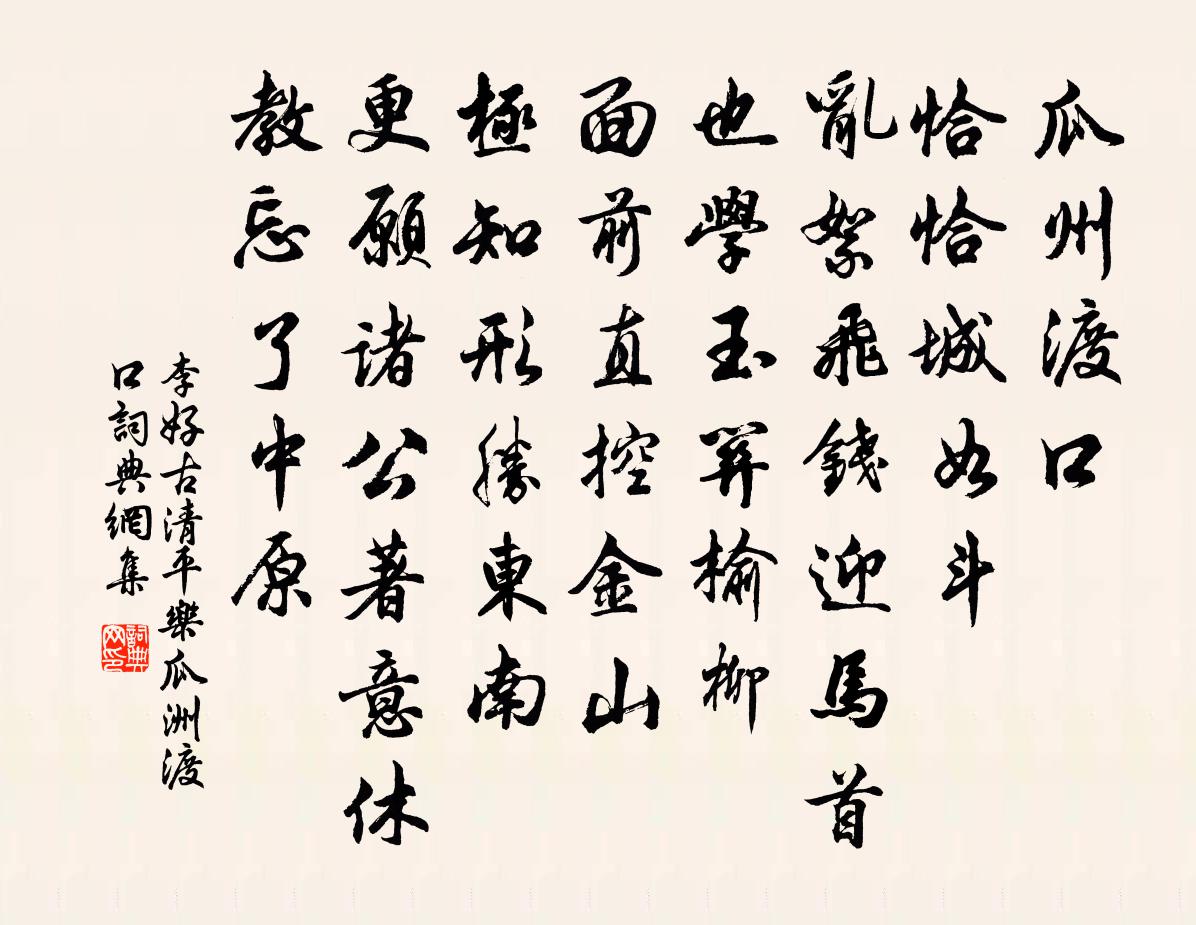 瓜州渡口
恰恰城如斗
亂絮飛錢迎馬首
也學玉關榆柳
面前直控金山
極知形勝東南
更願諸公著意休
教忘了中原
李好古清平樂瓜洲渡
口詞典網集
詞典網印